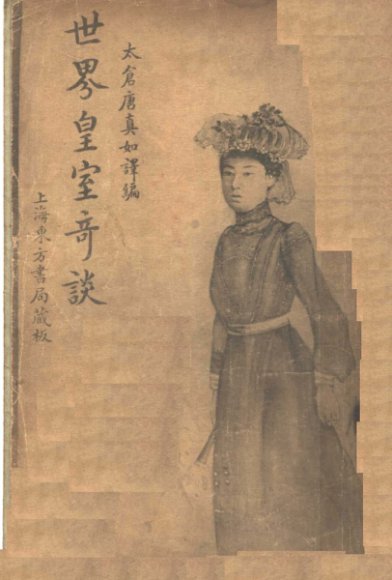 太倉唐真如譯編
世界皇室奇談
上海東方書局藏板